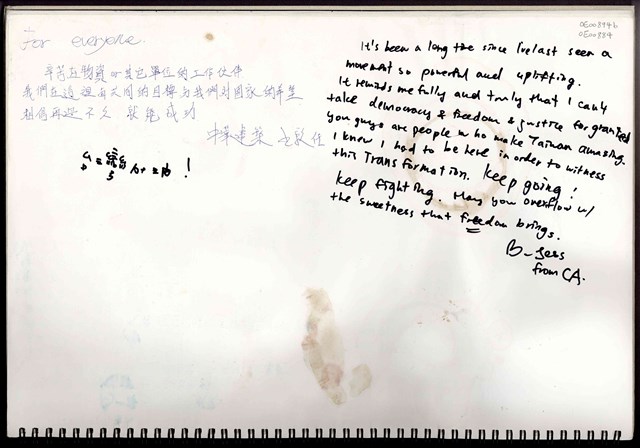 For everyone.
辛苦在物資or其它單位的工作伙伴
我們在這裡有共同的目標為我們對國家的希望
相信再過不久 就能成功
OE00394b
OE00384
It's been a long time since I've last seen a
movement so powerful and uplifting.
It reminds me fully and truly that I can't
take democracy & freedom & justice for granted
you guys are people who make Taiwan amazing.
I know I had to be here in order to witness
this Transformation. Keep going!
keep fighting. May you overflow w/
the sweetness that freedom brings.
B-Jess
from CA.